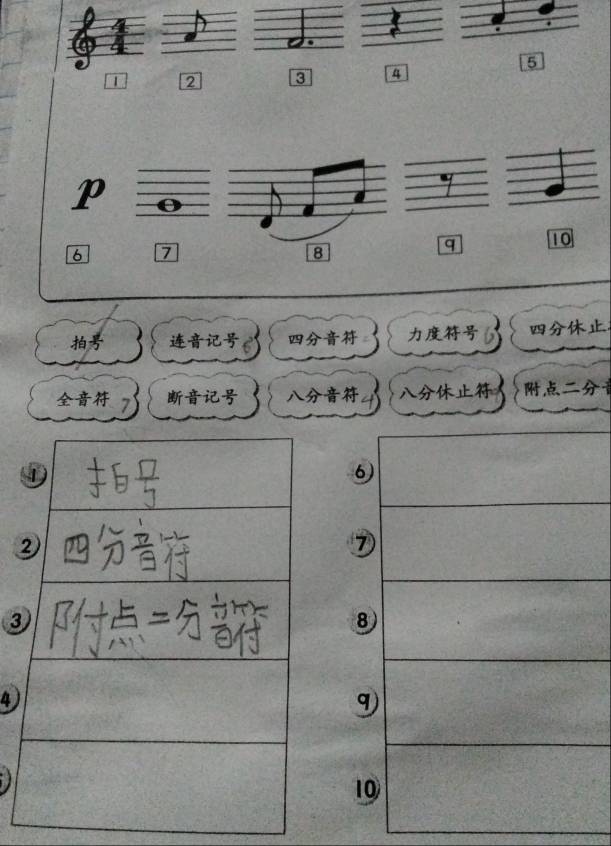 4
4
1 2 3 4 5
p
6 7 8 9 10
拍号 连音记号 四分音符 力度符号 6 四分休止
全音符 7 断音记号 八分音符 4 八分休止符 附点二分音
1 拍号 6
2 四分音符 7
3 附点二分音符 8
4 9
10